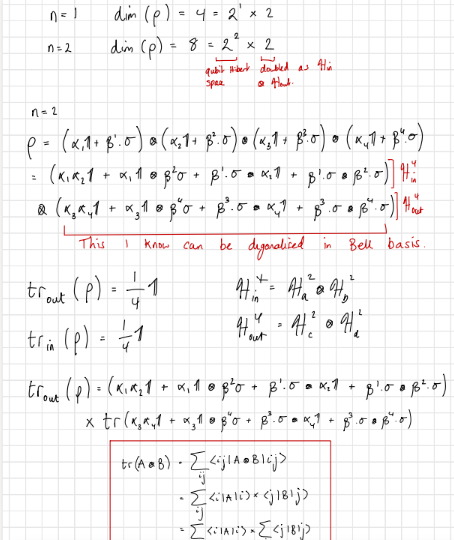 n=1 dim (ρ) = 4 = 2¹ × 2
n=2 dim (ρ) = 8 = 2² × 2
qubit Hilbert space doubled as ℋin ⊗ ℋout.
n=2
ρ = (α₁𝟙 + β¹·σ) ⊗ (α₂𝟙 + β²·σ) ⊗ (α₃𝟙 + β³·σ) ⊗ (α₄𝟙 + β⁴·σ)
= (α₁α₂𝟙 + α₁𝟙 ⊗ β²σ + β¹·σ ⊗ α₂𝟙 + β¹·σ ⊗ β²·σ)] ℋ⁴in
⊗ (α₃α₄𝟙 + α₃𝟙 ⊗ β⁴σ + β³·σ ⊗ α₄𝟙 + β³·σ ⊗ β⁴·σ)] ℋ⁴out
This I know can be digonalised in Bell basis.
tr out (ρ) = 1/4 𝟙 ℋ⁴in = ℋ²a ⊗ ℋ²b
tr in (ρ) = 1/4 𝟙 ℋ⁴out = ℋ²c ⊗ ℋ²d
tr out (ρ) = (α₁α₂𝟙 + α₁𝟙 ⊗ β²σ + β¹·σ ⊗ α₂𝟙 + β¹·σ ⊗ β²·σ)
× tr(α₃α₄𝟙 + α₃𝟙 ⊗ β⁴σ + β³·σ ⊗ α₄𝟙 + β³·σ ⊗ β⁴·σ)
tr(A⊗B) = ∑ij <ij|A⊗B|ij>
= ∑ij <i|A|i> × <j|B|j>
= ∑ <i|A|i> × ∑ <j|B|j>